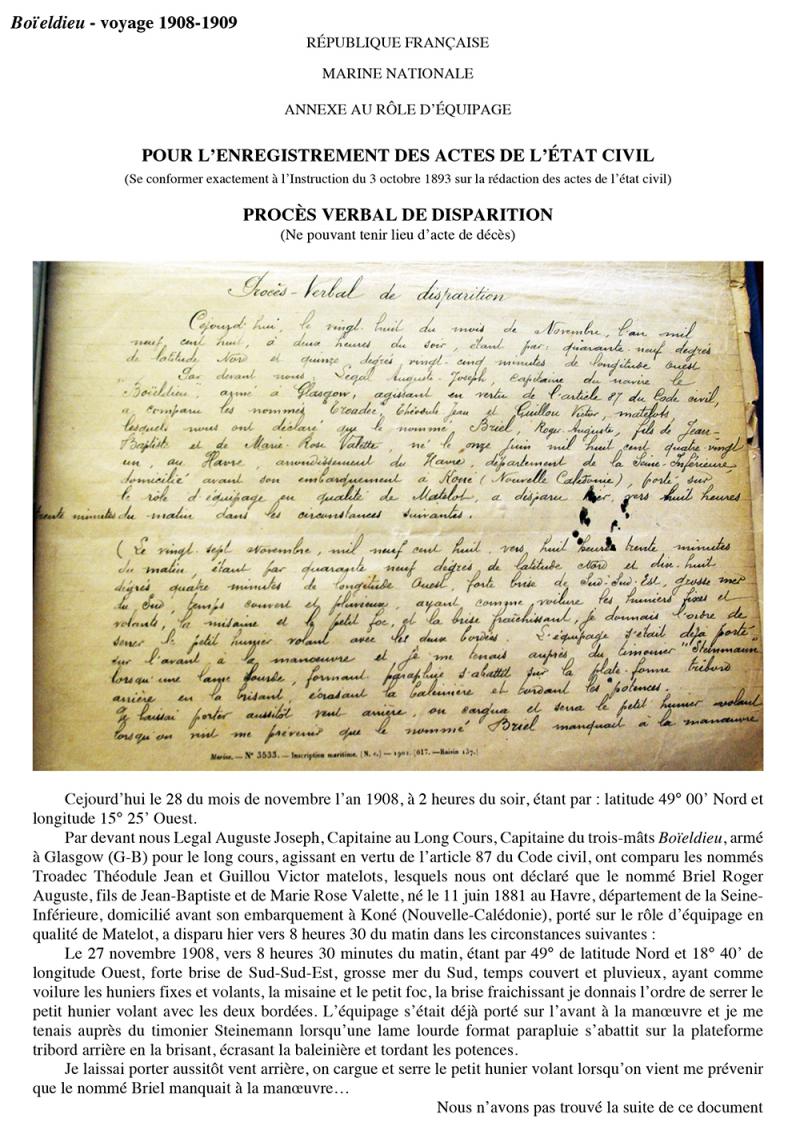 Boïeldieu - voyage 1908-1909
RÉPUBLIQUE FRANÇAISE
MARINE NATIONALE
ANNEXE AU RÔLE D’ÉQUIPAGE
POUR L’ENREGISTREMENT DES ACTES DE L’ÉTAT CIVIL
(Se conformer exactement à l’Instruction du 3 octobre 1893 sur la rédaction des actes de l’état civil)
PROCÈS VERBAL DE DISPARITION
(Ne pouvant tenir lieu d’acte de décès)
Procès-Verbal de disparition
Cejourd'hui, le vingt huit du mois de Novembre, l'an mil
neuf cent huit, à deux heures du soir, étant par: quarante neuf degrés
de latitude Nord et quinze degrés vingt-cinq minutes de longitude Ouest
Par devant nous, Legal Auguste-Joseph, capitaine du navire le
"Boïeldieu" armé à Glasgow, agissant en vertu de l'article 87 du Code civil,
a comparu les nommés Troadec, Théodule Jean et Guillou Victor, matelots,
lesquels nous ont déclaré que le nommé, Briel, Roger-Auguste, fils de Jean-
Baptiste et de Marie-Rose Valette, né le onze juin mil huit cent quatre-vingt
un, au Havre, arrondissement du Havre, département de la Seine-Inférieure,
domicilié avant son embarquement à Koné (Nouvelle Calédonie), porté sur
le rôle d'équipage en qualité de Matelot, a disparu hier, vers huit heures
trente minutes du matin dans les circonstances suivantes.
(Le vingt-sept Novembre, mil neuf cent huit vers huit heures trente minutes
du matin, étant par quarante neuf degrés de latitude Nord et dix-huit
degrés quatre minutes de longitude Ouest, forte brise de Sud-Sud-Est, grosse mer
du Sud, temps couvert et pluvieux, ayant comme voilure les huniers fixes et
volants, la misaine et le petit foc, et la brise fraîchissant, je donnais l'ordre de
serrer le petit hunier volant avec les deux bordées. L'équipage s'était déjà porté
sur l'avant à la manœuvre et je me tenais auprès du timonier "Steinmann"
lorsqu'une lame lourde, formant parapluie s'abattit sur la plate-forme tribord
arrière en la brisant, écrasant la baleinière et tordant les potences.
Je laissai porter aussitôt vent arrière, on cargua et serra le petit hunier volant
lorsqu'on vint me prévenir que le nommé Briel manquait à la manœuvre
Marine. — N° 3533. — Inscription maritime. [N. c.] — 1901. [617. — Raisin 137.]
Cejourd’hui le 28 du mois de novembre l’an 1908, à 2 heures du soir, étant par : latitude 49° 00’ Nord et
longitude 15° 25’ Ouest.
Par devant nous Legal Auguste Joseph, Capitaine au Long Cours, Capitaine du trois-mâts Boïeldieu, armé
à Glasgow (G-B) pour le long cours, agissant en vertu de l’article 87 du Code civil, ont comparu les nommés
Troadec Théodule Jean et Guillou Victor matelots, lesquels nous ont déclaré que le nommé Briel Roger
Auguste, fils de Jean-Baptiste et de Marie Rose Valette, né le 11 juin 1881 au Havre, département de la Seine-
Inférieure, domicilié avant son embarquement à Koné (Nouvelle-Calédonie), porté sur le rôle d’équipage en
qualité de Matelot, a disparu hier vers 8 heures 30 du matin dans les circonstances suivantes :
Le 27 novembre 1908, vers 8 heures 30 minutes du matin, étant par 49° de latitude Nord et 18° 40’ de
longitude Ouest, forte brise de Sud-Sud-Est, grosse mer du Sud, temps couvert et pluvieux, ayant comme
voilure les huniers fixes et volants, la misaine et le petit foc, la brise fraichissant je donnais l’ordre de serrer le
petit hunier volant avec les deux bordées. L’équipage s’était déjà porté sur l’avant à la manœuvre et je me
tenais auprès du timonier Steinemann lorsqu’une lame lourde format parapluie s’abattit sur la plateforme
tribord arrière en la brisant, écrasant la baleinière et tordant les potences.
Je laissai porter aussitôt vent arrière, on cargue et serre le petit hunier volant lorsqu’on vient me prévenir
que le nommé Briel manquait à la manœuvre…
Nous n’avons pas trouvé la suite de ce document